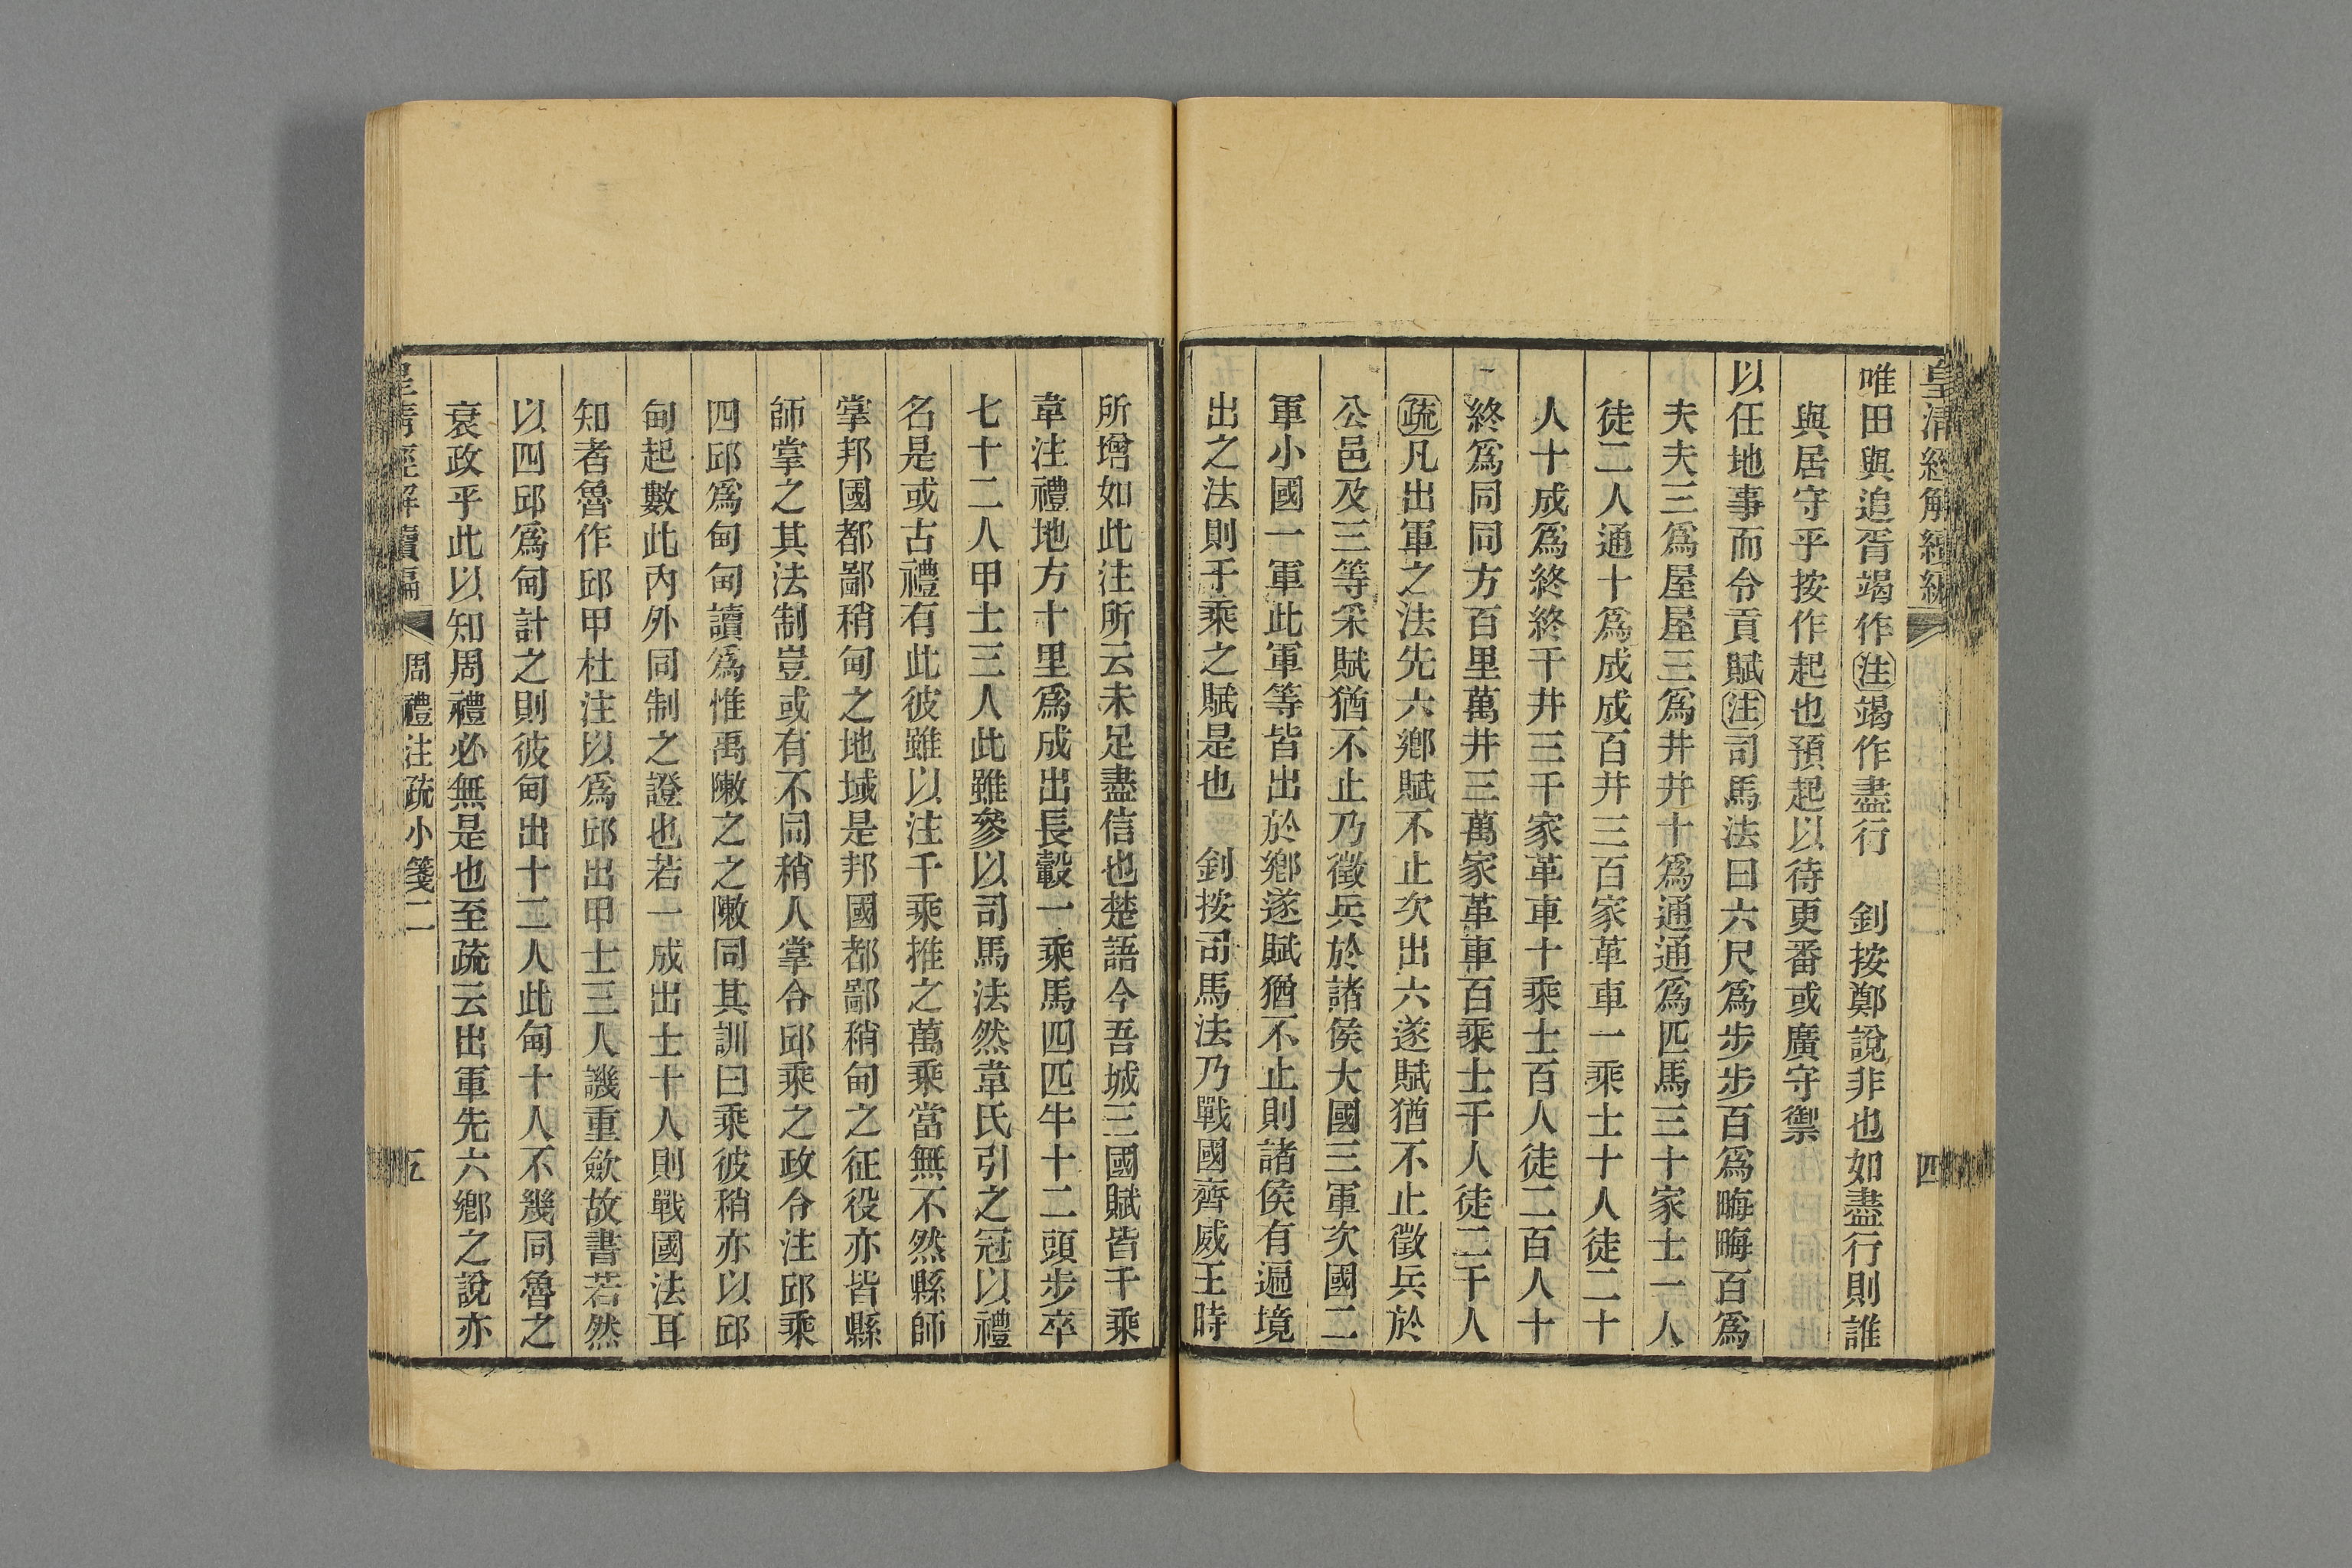 皇清經解續編
四
唯田與追胥竭作注竭作盡行　釗按鄭說非也如盡行則誰
與居守乎按作起也預起以待更番或廣守禦
以任地事而令貢賦注司馬法曰六尺爲步步百爲畮畮百爲
夫夫三爲屋屋三爲井井十爲通通爲匹馬三十家士一人
徒二人通十爲成成百井三百家革車一乘士十人徒二十
人十成爲終終千井三千家革車十乘士百人徒二百人十
終爲同同方百里萬井三萬家革車百乘士千人徒二千人
疏凡出軍之法先六鄉賦不止次出六遂賦猶不止徵兵於
公邑及三等采賦猶不止乃徵兵於諸侯大國三軍次國二
軍小國一軍此軍等皆出於鄉遂賦猶不止則諸侯有遍境
出之法則千乘之賦是也　釗按司馬法乃戰國齊威王時
所增如此注所云未足盡信也楚語今吾城三國賦皆千乘
韋注禮地方十里爲成出長轂一乘馬四匹牛十二頭步卒
七十二人甲士三人此雖參以司馬法然韋氏引之冠以禮
名是或古禮有此彼雖以注千乘推之萬乘當無不然縣師
掌邦國都鄙稍甸之地域是邦國都鄙稍甸之征役亦皆縣
師掌之其法制豈或有不同稍人掌令邱乘之政令注邱乘
四邱爲甸甸讀爲惟禹敶之之敶同其訓曰乘彼稍亦以邱
甸起數此內外同制之證也若一成出士十人則戰國法耳
知者魯作邱甲杜注以爲邱出甲士三人譏重斂故書若然
以四邱爲甸計之則彼甸出十二人此甸十人不幾同魯之
衰政乎此以知周禮必無是也至疏云出軍先六鄉之說亦
皇清經解續編
周禮注疏小箋二
五